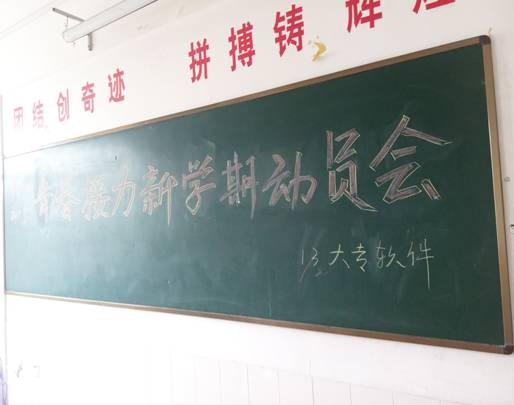 团结创奇迹 拼搏铸辉煌
青春接力新学期动员会
13大专软件